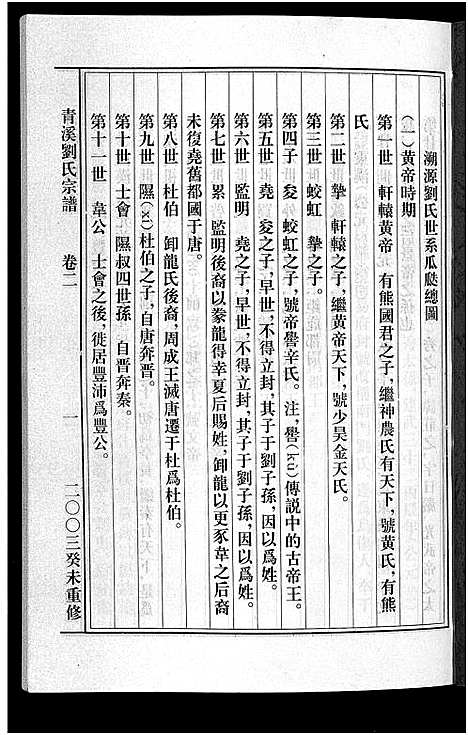 溯源劉氏世系瓜瓞總圖
(一)黄帝時期
第一世 軒轅黄帝 有熊國君之子,繼神農氏有天下,號黄氏,有熊
氏
第二世 摯 軒轅之子,繼黄帝天下,號少昊金天氏。
第三世 蛟虹 摯之子。
第四子 夋 蛟虹之子,號帝嚳辛氏。注,嚳(kù)傳説中的古帝王。
第五世 堯 夋之子,早世,不得立封,其子于劉子孫,因以爲姓。
第六世 監明 堯之子,早世,不得立封,其子于劉子孫,因以爲姓。
第七世 累 監明後裔以豢龍得幸夏后賜姓,卸龍以更豕韋之后裔
未復堯舊都國于唐。
第八世 杜伯 卸龍氏後裔,周成王滅唐遷于杜爲杜伯。
第九世 隰(xí)杜伯之子,自唐奔晋。
第十世 士會 隰叔四世孫 自晋奔秦。
第十一世 韋公 士會之後,徙居豐沛爲豐公。
青溪劉氏宗譜 卷二 一 二〇〇三癸未重修